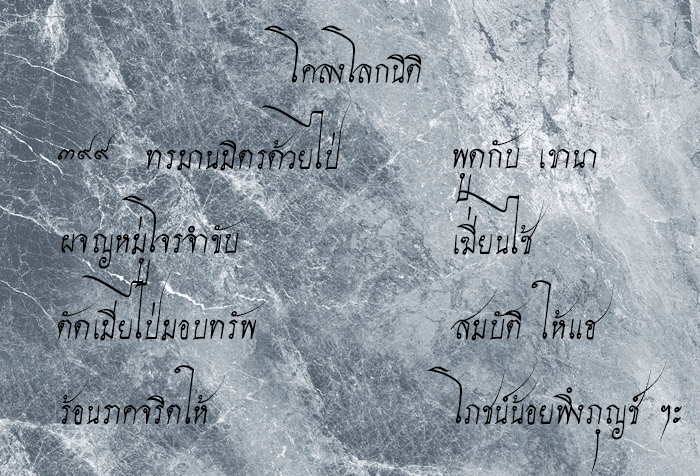 โคลงโลกนิติ
๓๙๙ ทรมานมิตรด้วยไป่ พูดกับ เขานา
ผจญหมู่โจรจำขับ เฆี่ยนไช้
ดัดเมียไป่มอบทรัพ สมบัติ ให้แฮ
ร้อนราคจริตให้ โภชน์น้อยพึงภุญช์ ๆะ